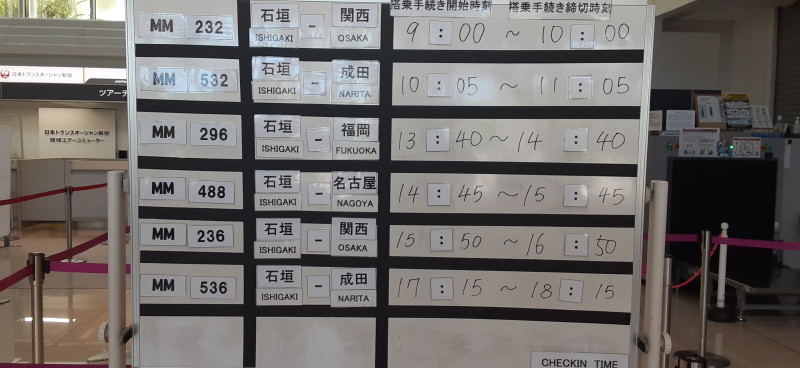 搭乗手続き開始時刻 搭乗手続き締切時刻
MM 232 石垣 - 関西 9:00 ~ 10:00
ISHIGAKI OSAKA
MM 532 石垣 - 成田 10:05 ~ 11:05
ISHIGAKI NARITA
MM 296 石垣 - 福岡 13:40 ~ 14:40
ISHIGAKI FUKUOKA
MM 488 石垣 - 名古屋 14:45 ~ 15:45
ISHIGAKI NAGOYA
MM 236 石垣 - 関西 15:50 ~ 16:50
ISHIGAKI OSAKA
MM 536 石垣 - 成田 17:15 ~ 18:15
ISHIGAKI NARITA
CHECKIN TIME
日本トランスオーシャン航空
ツアーデ
日本トランスオーシャン航空
琉球エアーコミューター